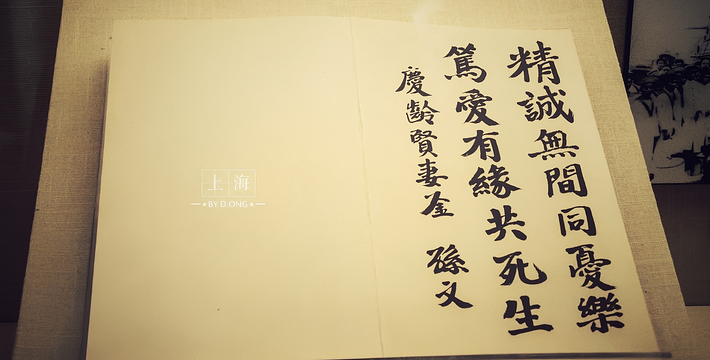 精誠無間同憂樂
篤愛有緣共死生
慶齡賢妻鉴 孫文
上海
★BY D.ONG★